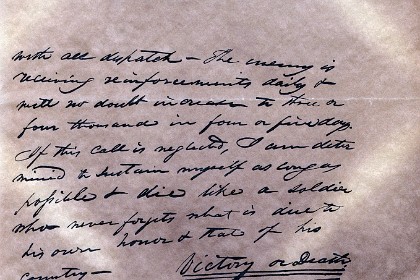 with all dispatch — The enemy is
receiving reinforcements daily &
will no doubt increase to three or
four thousand in four or five days.
If this call is neglected, I am deter
mined to sustain myself as long as
possible & die like a soldier
who never forgets what is due to
his own honor & that of his
country —
Victory or Death